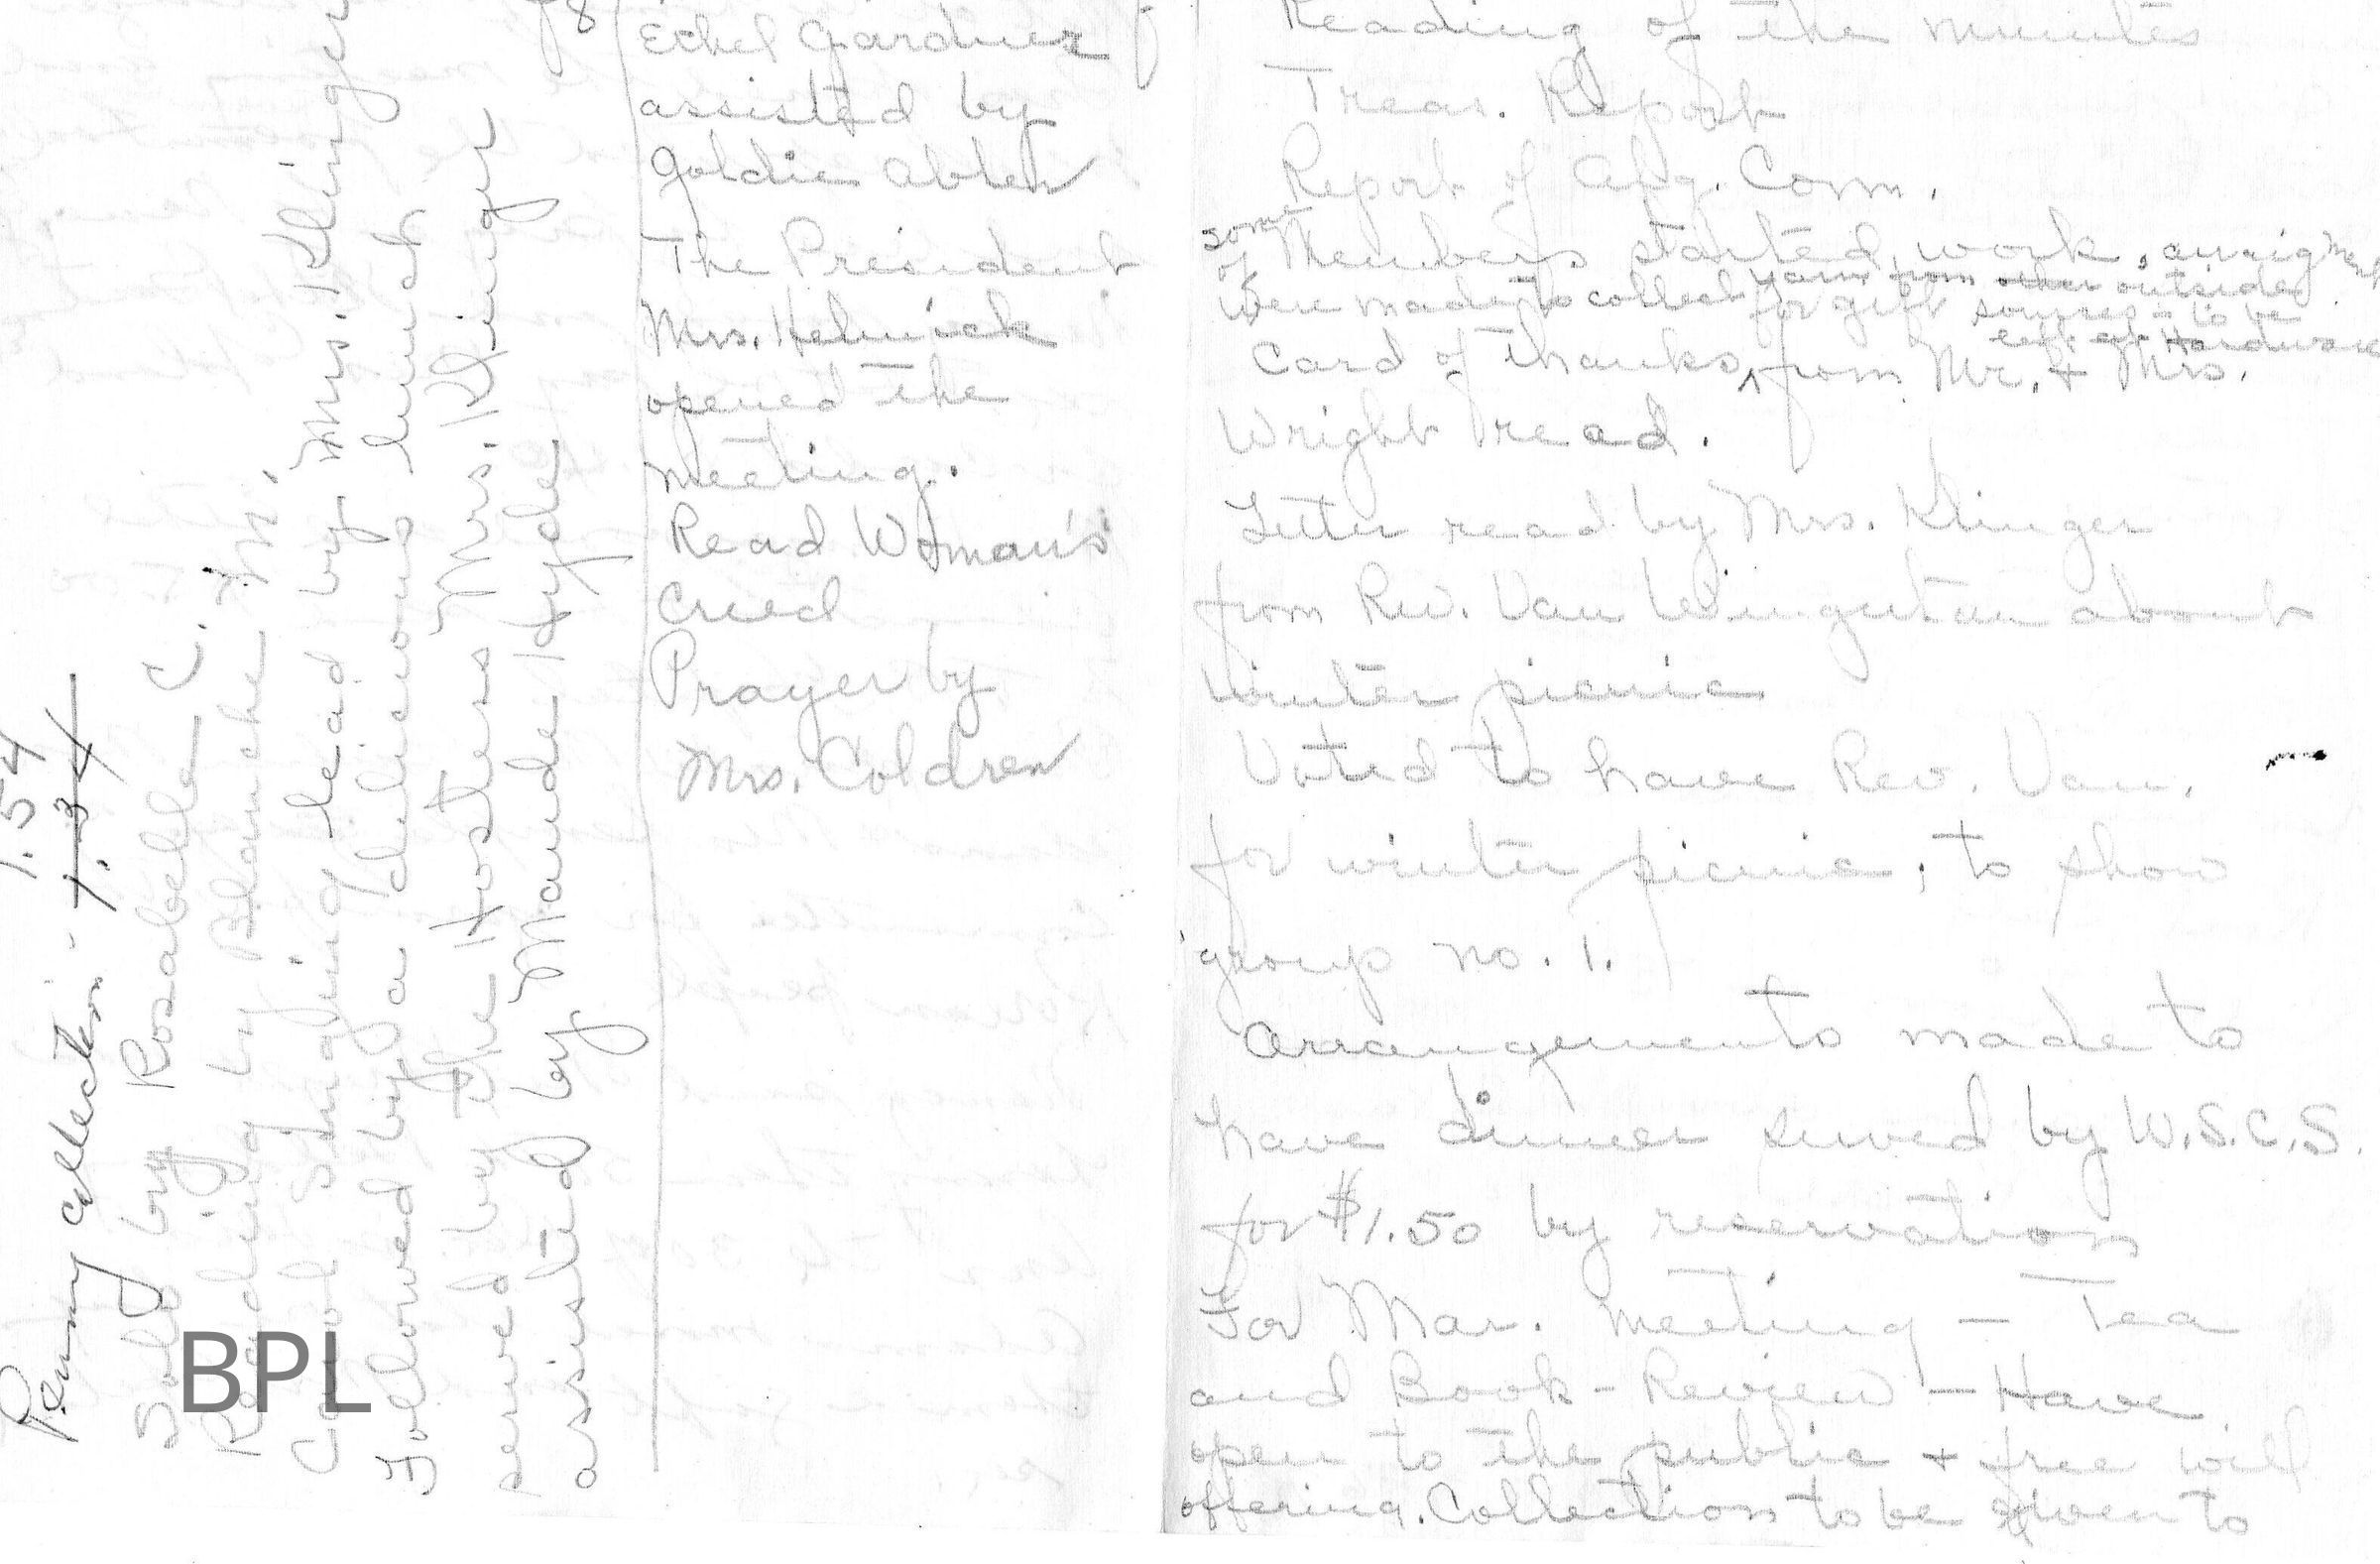 Penny collection - 1.34
1.54
Solo by Rosabelle C.
Reading by Blanche M.
Carol Singing lead by Mrs. Klinger
Followed by a delicious lunch
served by the Hostess Mrs. Klinger
assisted by Maude Hyde
Ethel Gardner
assisted by
Goldie Ablen
The President
Mrs. Helmick
opened the
meeting.
Read Woman's
Creed
Prayer by
Mrs. Coldren
Reading of the minutes
Treas. Report
Report of Apg. Comm.
some of Members started work.
were made to collect yarn from other outside sources - to be
left at Hardware
Card of thanks for gift from Mr. + Mrs.
Wright read.
Letter read by Mrs. Klinger
from Rev. Van Wingutan about
winter picnic
Voted to have Rev. Van.
for winter picnic, to show
group no. 1.
Arrangements made to
have dinner served by W.S.C.S.
for $1.50 by reservation
For Mar. meeting - Tea
and Book-Review - Have
open to the public + free will
offering. Collection to be given to
BPL